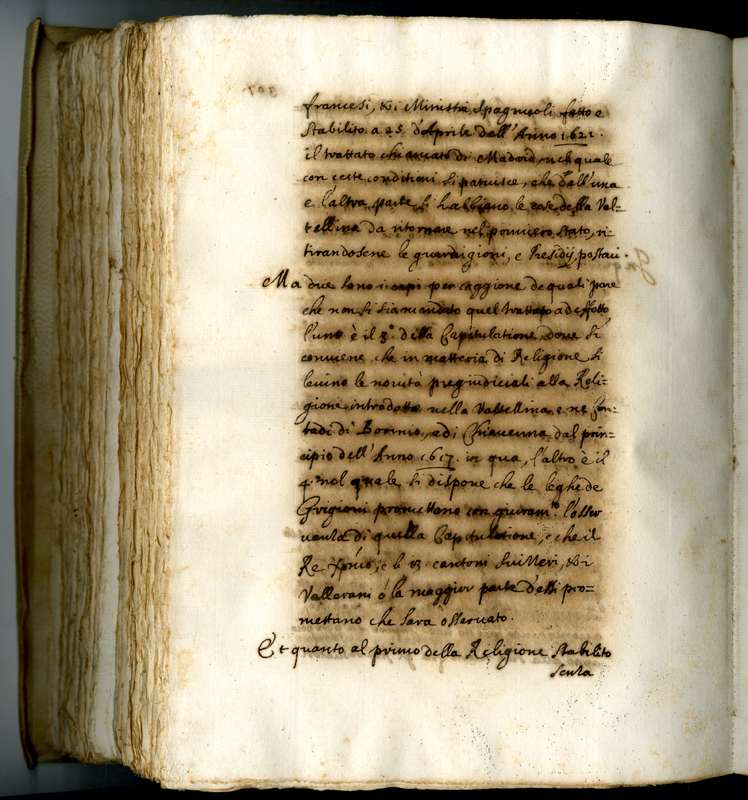 francesi, & i Ministri Spagnuoli fatto e
stabilito a 25. d'Aprile dell'Anno 1621.
il trattato chiamato di Madrid, nel quale
con certe conditioni si patuisce, che dall'una
e l'altra parte si habbiano le cose della Val=
tellina da ritornare nel primiero stato, ri=
tirandosene le guarnigioni, e Presidij postavi.
Ma due sono i capi per caggione de quali pare
che non si sia mandato quel trattato ad effetto
l'uno è il 3.º della Capitulatione, dove si
conviene che in matteria di Religione si
levino le novità pregiudiciali alla Reli=
gione introdotte nella Valtellina, e ne Con=
tadi di Bormio, e di Chiavenna dal prin=
cipio dell'Anno 1617. in qua, l'altro è il
4.º nel quale si dispone che le leghe de
Grigioni promettano con giuram.to l'osser
vanza di quella Capitulatione, e che il
Re Xpmo, e li 13 cantoni Suizzeri, & i
Vallesani ò la maggior parte d'essi pro=
mettano che sara osservato.
Et quanto al primo della Religione stabilito
senza